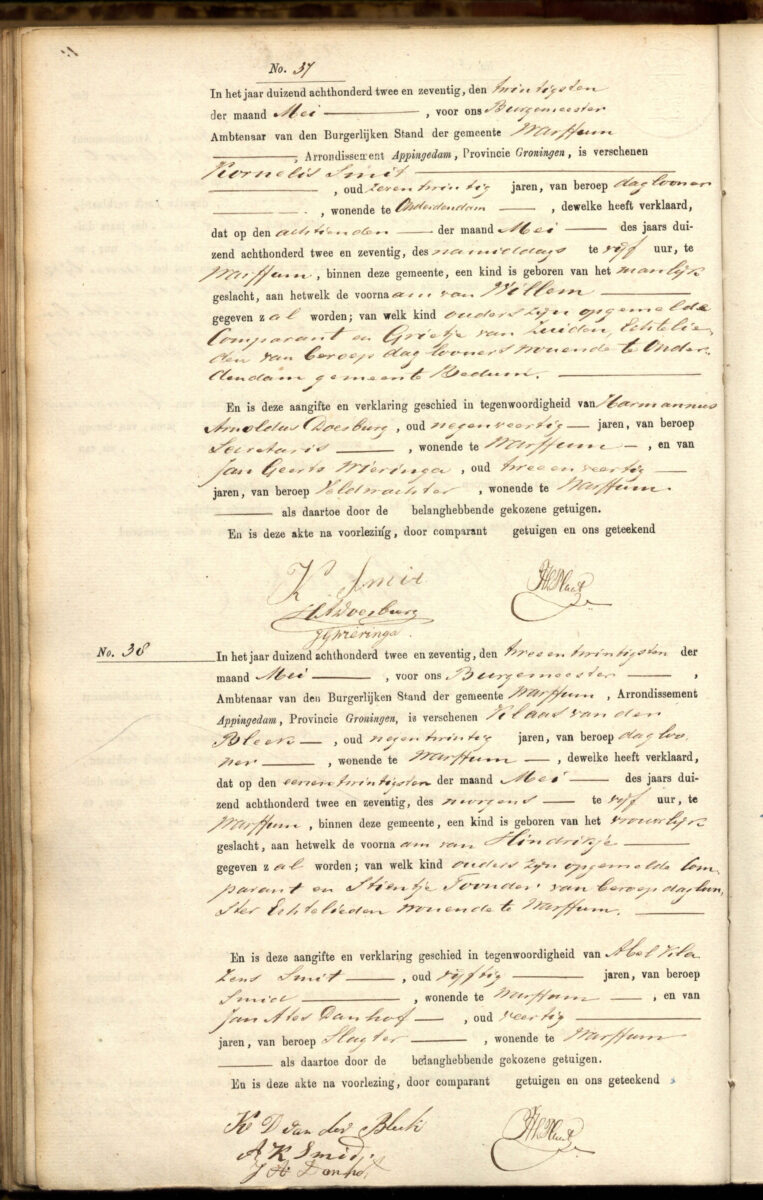 No. 37
In het jaar duizend achthonderd twee en zeventig, den twintigsten
der maand Mei , voor ons Burgemeester
Ambtenaar van den Burgerlijken Stand der gemeente Warffum
, Arrondissement Appingedam, Provincie Groningen, is verschenen
Kornelis Smit
, oud zeventwintig jaren, van beroep daglooner
, wonende te Onderdendam , dewelke heeft verklaard,
dat op den achtienden der maand Mei des jaars dui-
zend achthonderd twee en zeventig, des namiddags te vijf uur, te
Warffum, binnen deze gemeente, een kind is geboren van het manlijk
geslacht, aan hetwelk de voornaam van Willem
gegeven zal worden; van welk kind ouders zijn opgemelde
Comparant en Grietje van Zuiden, Echtelie-
den van beroep daglooners wonende te Onder-
dendam gemeente Bedum.
En is deze aangifte en verklaring geschied in tegenwoordigheid van Harmannus
Arnoldus Doesburg, oud negenveertig jaren, van beroep
Secretaris , wonende te Warffum , en van
Jan Geerts Wieringa, oud twee en veertig
jaren, van beroep Veldwachter , wonende te Warffum.
als daartoe door de belanghebbende gekozene getuigen.
En is deze akte na voorlezing, door comparant getuigen en ons geteekend
K Smit
HADoesburg
JGWieringa.
No. 38
In het jaar duizend achthonderd twee en zeventig, den twee en twintigsten der
maand Mei , voor ons Burgemeester ,
Ambtenaar van den Burgerlijken Stand der gemeente Warffum, Arrondissement
Appingedam, Provincie Groningen, is verschenen Klaas van der
Bleek , oud negentwintig jaren, van beroep dagloo
ner , wonende te Warffum , dewelke heeft verklaard,
dat op den eenentwintigsten der maand Mei des jaars dui-
zend achthonderd twee en zeventig, des morgens te vijf uur, te
Warffum, binnen deze gemeente, een kind is geboren van het vrouwlijk
geslacht, aan hetwelk de voornaam van Hindrikje
gegeven zal worden; van welk kind ouders zijn opgemelde Com-
parant en Stientje Toonder van beroep dagloon-
ster Echtelieden wonende te Warffum.
En is deze aangifte en verklaring geschied in tegenwoordigheid van Abel Kla
zens Smit , oud vijftig jaren, van beroep
Smid , wonende te Warffum , en van
Jan Ates Danhof , oud veertig
jaren, van beroep Slagter , wonende te Warffum
als daartoe door de belanghebbende gekozene getuigen.
En is deze akte na voorlezing, door comparant getuigen en ons geteekend
K D van der Bleek
A K Smid.
J A Danhof